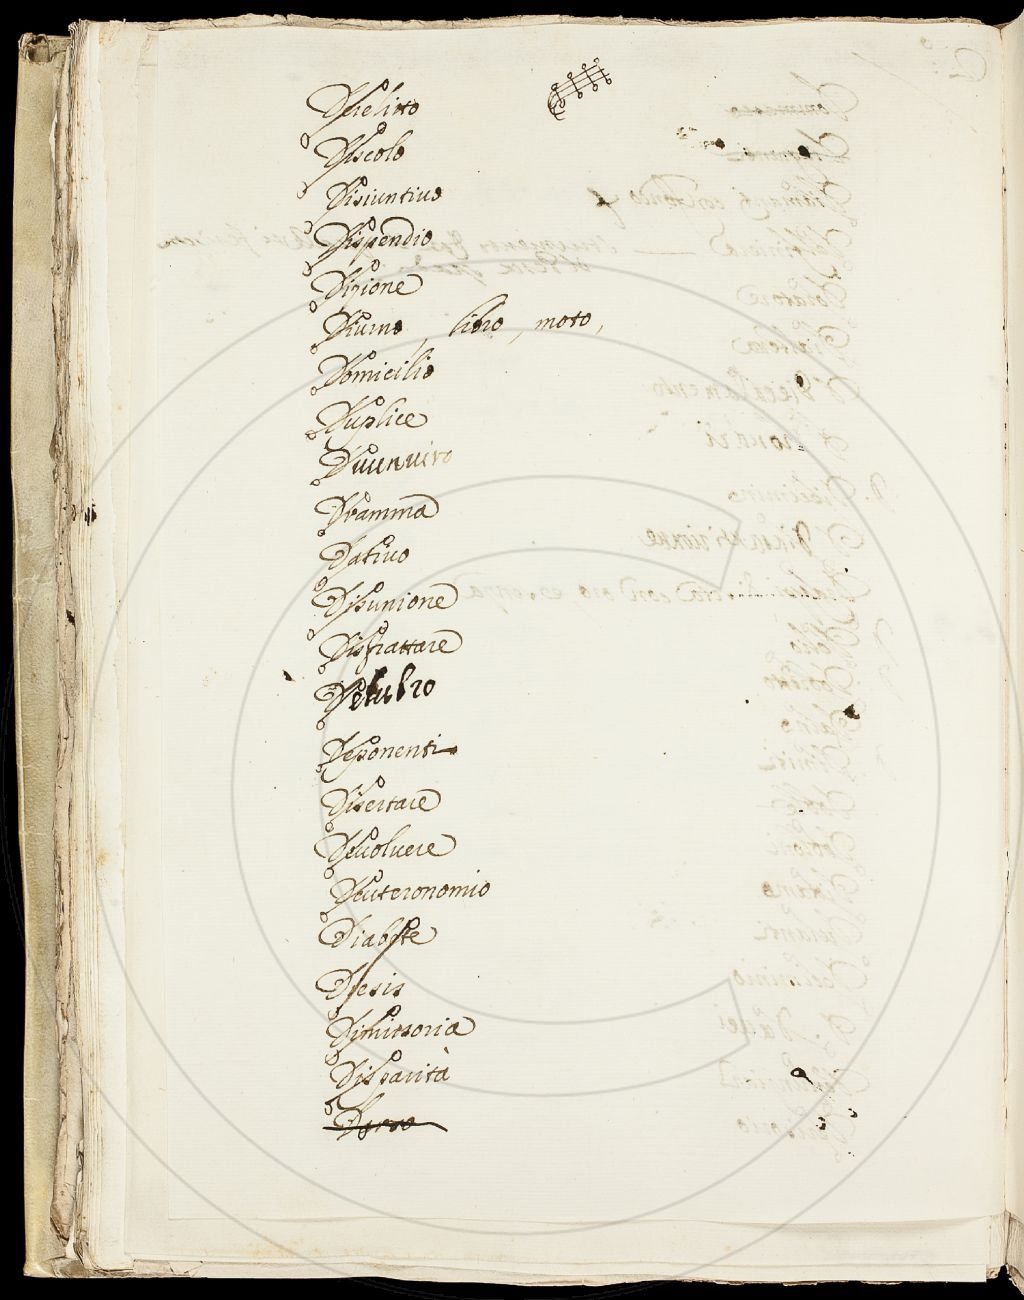 Derelitto
Discolo
Disiuntiuo
Dispendio
Dizione
Diurno, libro, moto,
Domicilio
Duplice
Duumuiro
Dramma
Datiuo
Disunione
Disfrattare
Delubro
Deponenti
Disertare
Deuoluere
Deuteronomio
Diabete
Diesis
Dimissoria
Disparità